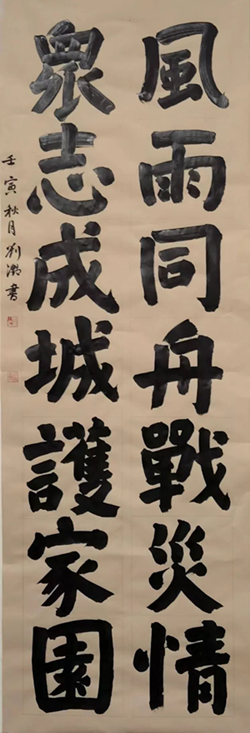 風雨同舟戰災情
眾志成城護家園
壬寅秋月劉瀚書